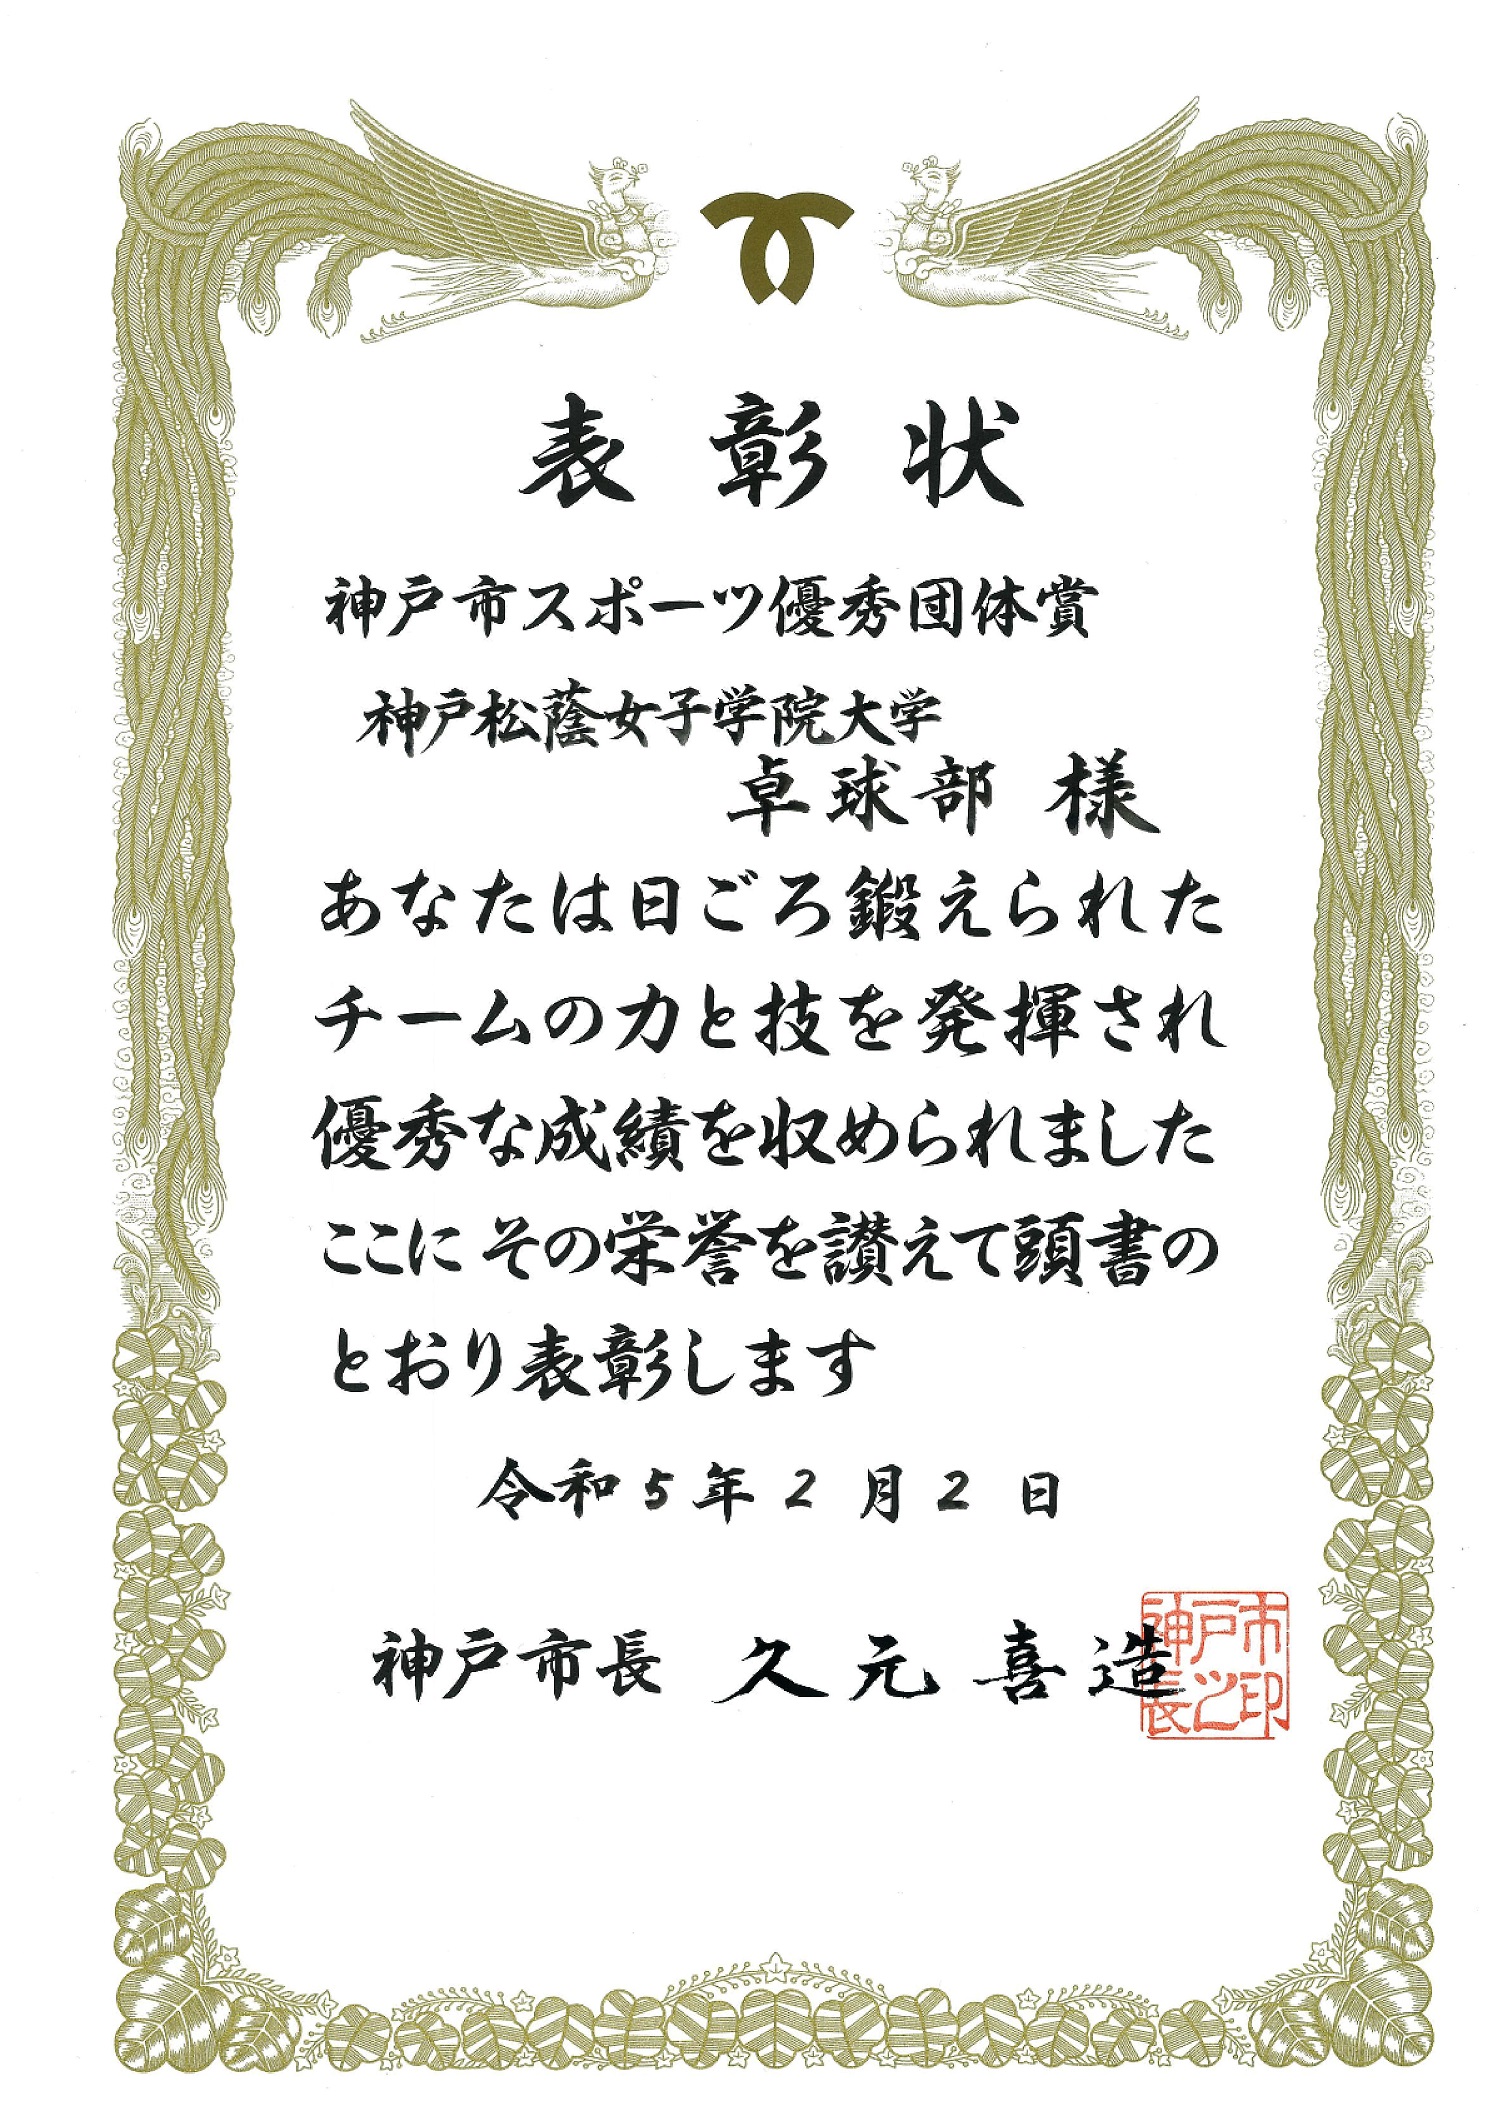 表彰状
神戸市スポーツ優秀団体賞
神戸松蔭女子学院大学
卓球部 様
あなたは日ごろ鍛えられた
チームの力と技を発揮され
優秀な成績を収められました
ここに その栄誉を讃えて頭書の
とおり表彰します
令和5年2月2日
神戸市長 久元喜造
神戸市
長之印